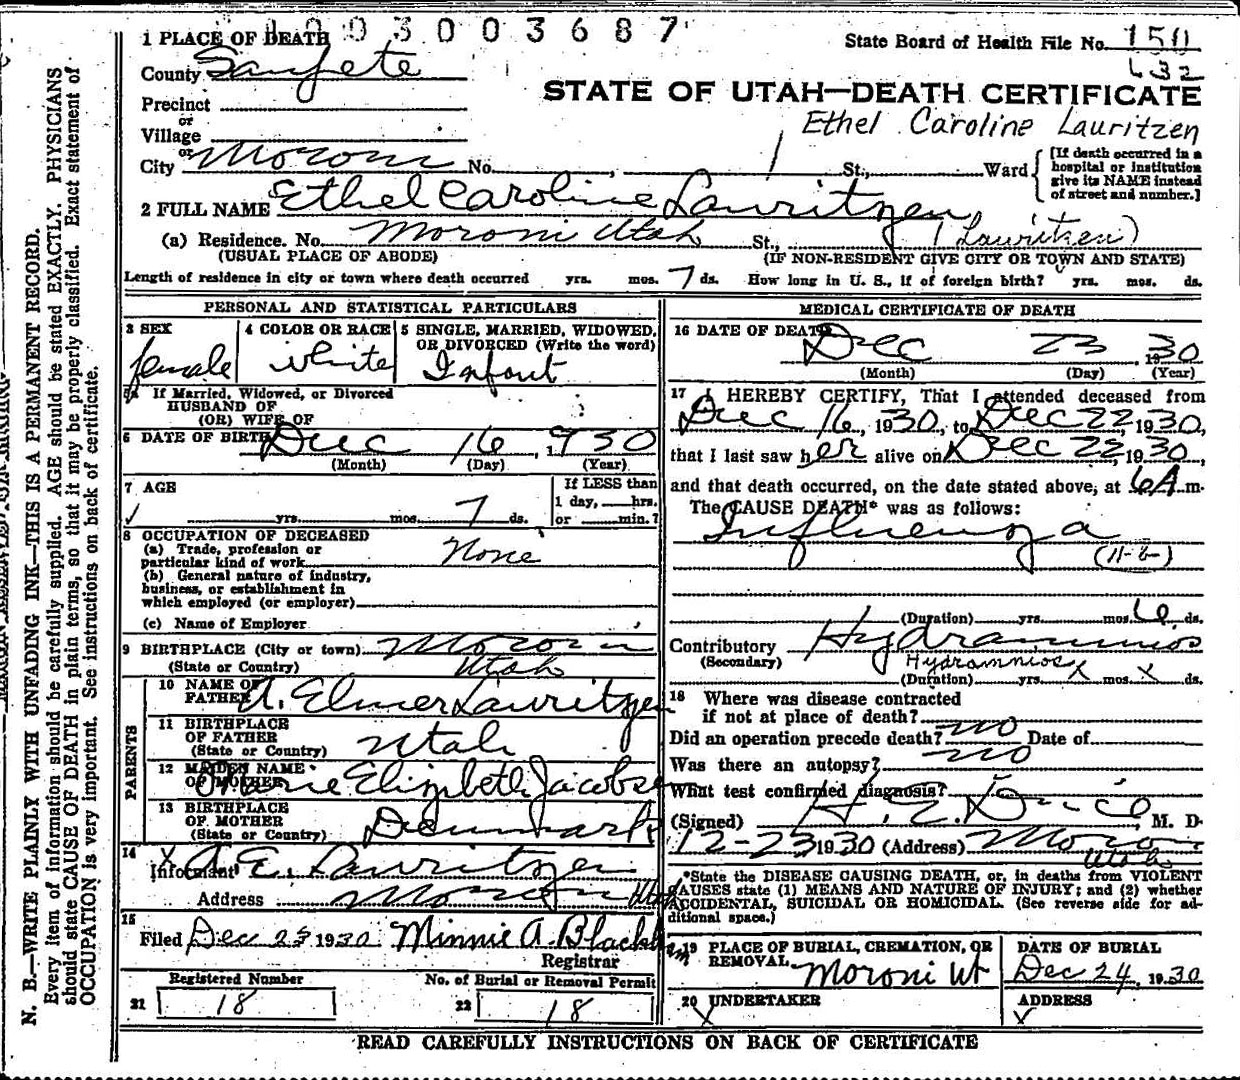 1 PLACE OF DEATH 1 9 3 0 0 3 6 8 7
State Board of Health File No. 150
632
County Sanpete
STATE OF UTAH—DEATH CERTIFICATE
Precinct
or
Village
Ethel Caroline Lauritzen
or
City Moroni No. , St., Ward
[If death occurred in a hospital or institution give its NAME instead of street and number.]
2 FULL NAME Ethel Caroline Lauritzen
(Lauritzen)
(a) Residence. No. Moroni Utah St.,
(USUAL PLACE OF ABODE) (IF NON-RESIDENT GIVE CITY OR TOWN AND STATE)
Length of residence in city or town where death occurred yrs. mos. 7 ds. How long in U. S., if of foreign birth? yrs. mos. ds.
PERSONAL AND STATISTICAL PARTICULARS
3 SEX female
4 COLOR OR RACE white
5 SINGLE, MARRIED, WIDOWED, OR DIVORCED (Write the word) Infant
5a If Married, Widowed, or Divorced
HUSBAND OF
(OR) WIFE OF
6 DATE OF BIRTH Dec 16, 1930
(Month) (Day) (Year)
7 AGE
yrs. mos. 7 ds.
If LESS than
1 day, hrs.
or min.?
8 OCCUPATION OF DECEASED
(a) Trade, profession or
particular kind of work None
(b) General nature of industry,
business, or establishment in
which employed (or employer)
(c) Name of Employer
9 BIRTHPLACE (City or town) Moroni
(State or Country) Utah
PARENTS
10 NAME OF
FATHER A. Elmer Lauritzen
11 BIRTHPLACE
OF FATHER
(State or Country) Utah
12 MAIDEN NAME
OF MOTHER Marie Elizabeth Jacobsen
13 BIRTHPLACE
OF MOTHER
(State or Country) Denmark
14
X
Informant A E. Lauritzen
Address Moroni Utah
15
Filed Dec 23 1930 Minnie A. Blackham
Registrar
Registered Number No. of Burial or Removal Permit
21 18 22 18
MEDICAL CERTIFICATE OF DEATH
16 DATE OF DEATH
Dec 23, 1930
(Month) (Day) (Year)
17 I HEREBY CERTIFY, That I attended deceased from
Dec 16, 1930, to Dec 22, 1930,
that I last saw her alive on Dec 22, 1930,
and that death occurred, on the date stated above, at 6A m.
The CAUSE DEATH* was as follows:
Influenza
(11-b)
(Duration) yrs. mos. 6 ds.
Contributory Hydramnios
(Secondary) Hydramnios
(Duration) yrs. x mos. x ds.
18 Where was disease contracted
if not at place of death?
Did an operation precede death? no Date of
Was there an autopsy? no
What test confirmed diagnosis?
(Signed) H. E. , M. D.
12-23 1930 (Address) Moroni
Utah
*State the DISEASE CAUSING DEATH, or, in deaths from VIOLENT
CAUSES state (1) MEANS AND NATURE OF INJURY; and (2) whether
ACCIDENTAL, SUICIDAL OR HOMICIDAL. (See reverse side for ad-
ditional space.)
19 PLACE OF BURIAL, CREMATION, OR
REMOVAL Moroni Ut
DATE OF BURIAL
Dec 24, 1930
20 UNDERTAKER
X
ADDRESS
X
READ CAREFULLY INSTRUCTIONS ON BACK OF CERTIFICATE
N. B.—WRITE PLAINLY WITH UNFADING INK—THIS IS A PERMANENT RECORD.
Every item of information should be carefully supplied. AGE should be stated EXACTLY. PHYSICIANS
should state CAUSE OF DEATH in plain terms, so that it may be properly classified. Exact statement of
OCCUPATION is very important. See instructions on back of certificate.